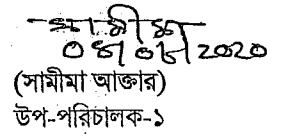 সামীমা
০৪/০৪/2020
(সামীমা আক্তার)
উপ-পরিচালক-১